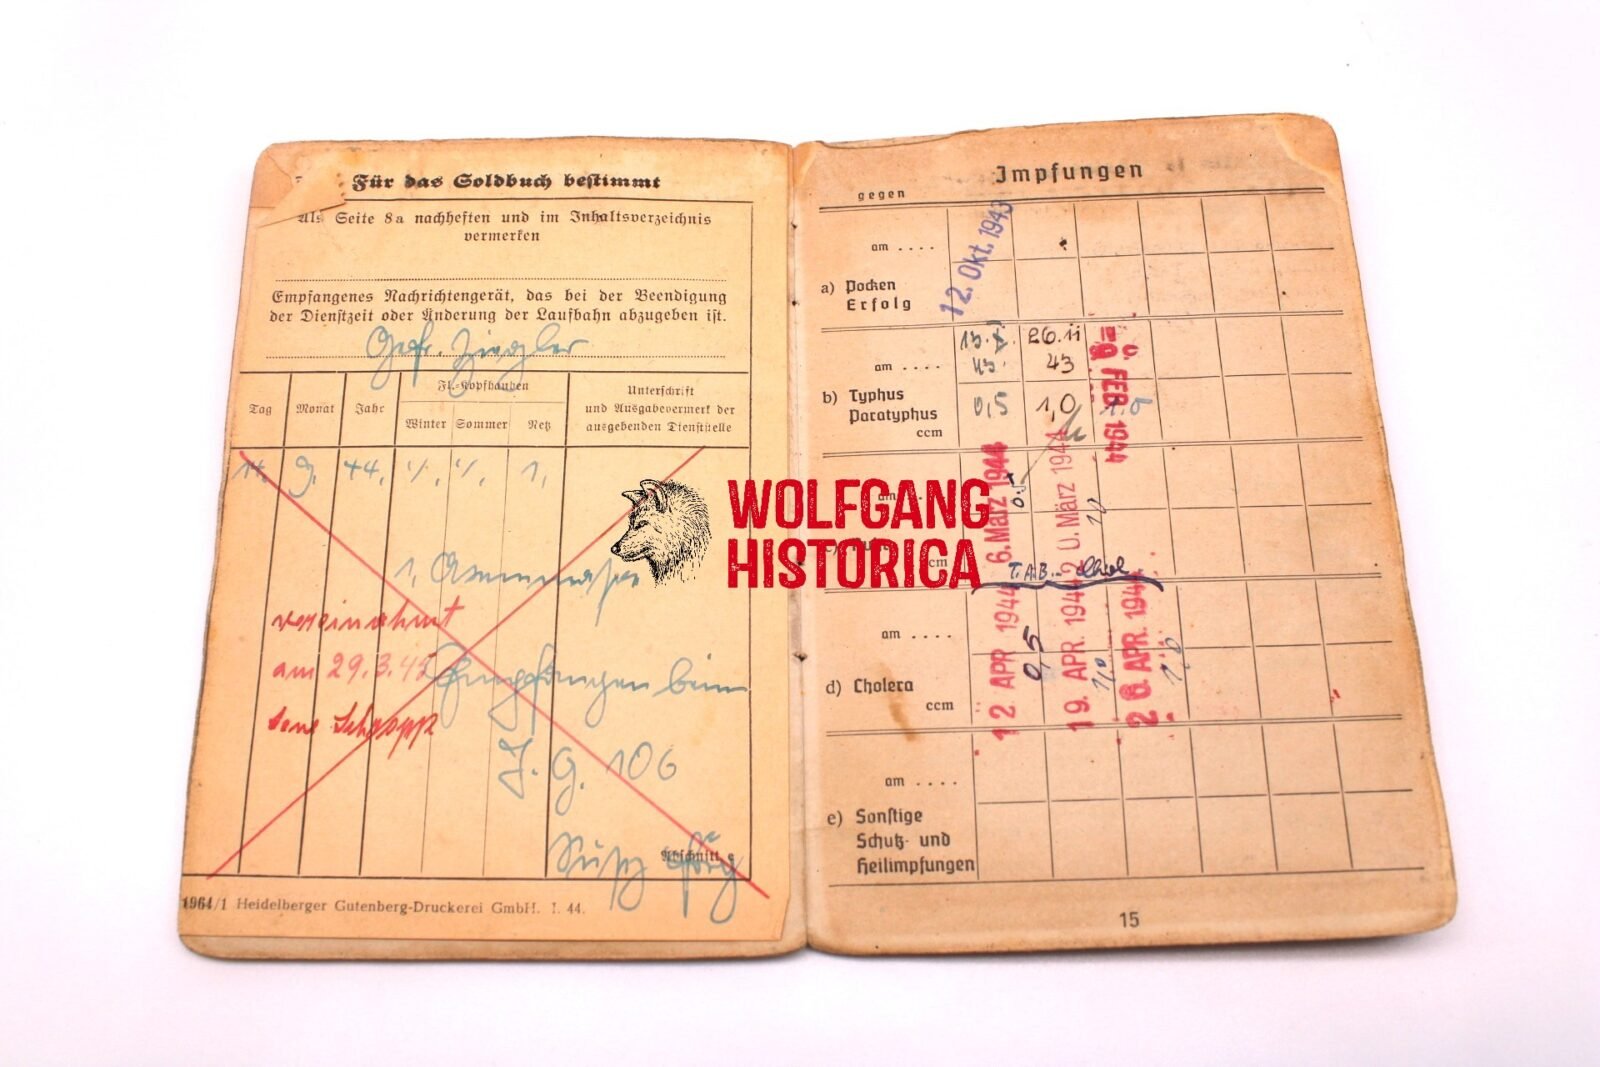 Für das Soldbuch bestimmt
Als Seite 8a nachheften und im Inhaltsverzeichnis
vermerken
Empfangenes Nachrichtengerät, das bei der Beendigung
der Dienstzeit oder Änderung der Laufbahn abzugeben ist.
Gefr. Ziegler
Tag Monat Jahr
Fl.-Kopfhauben
Winter Sommer Netz
Unterschrift
und Ausgabevermerk der
ausgebenden Dienststelle
9. 44. 1,
1,
vereinahmt
am 29.3.45
Empfangen beim
J. G. 106
Abschnitt c
1964/1 Heidelberger Gutenberg-Druckerei GmbH. I. 44.
WOLFGANG
HISTORICA
Impfungen
gegen
am ....
12. Okt. 1943
a) Pocken
Erfolg
am ....
13.X. 43.
26.11 43
9. FEB. 1944
b) Typhus
Paratyphus
ccm
0,5 1,0 1,0
am
6. März 1944
0,5
2 0. März 1944
10
c) Ruhr
ccm
T.A.B.
am ....
12. APR. 1944
0,5
19. APR. 1944
1,0
2 6. APR. 194
1,0
d) Cholera
ccm
am ....
e) Sonstige
Schutz- und
Heilimpfungen
15